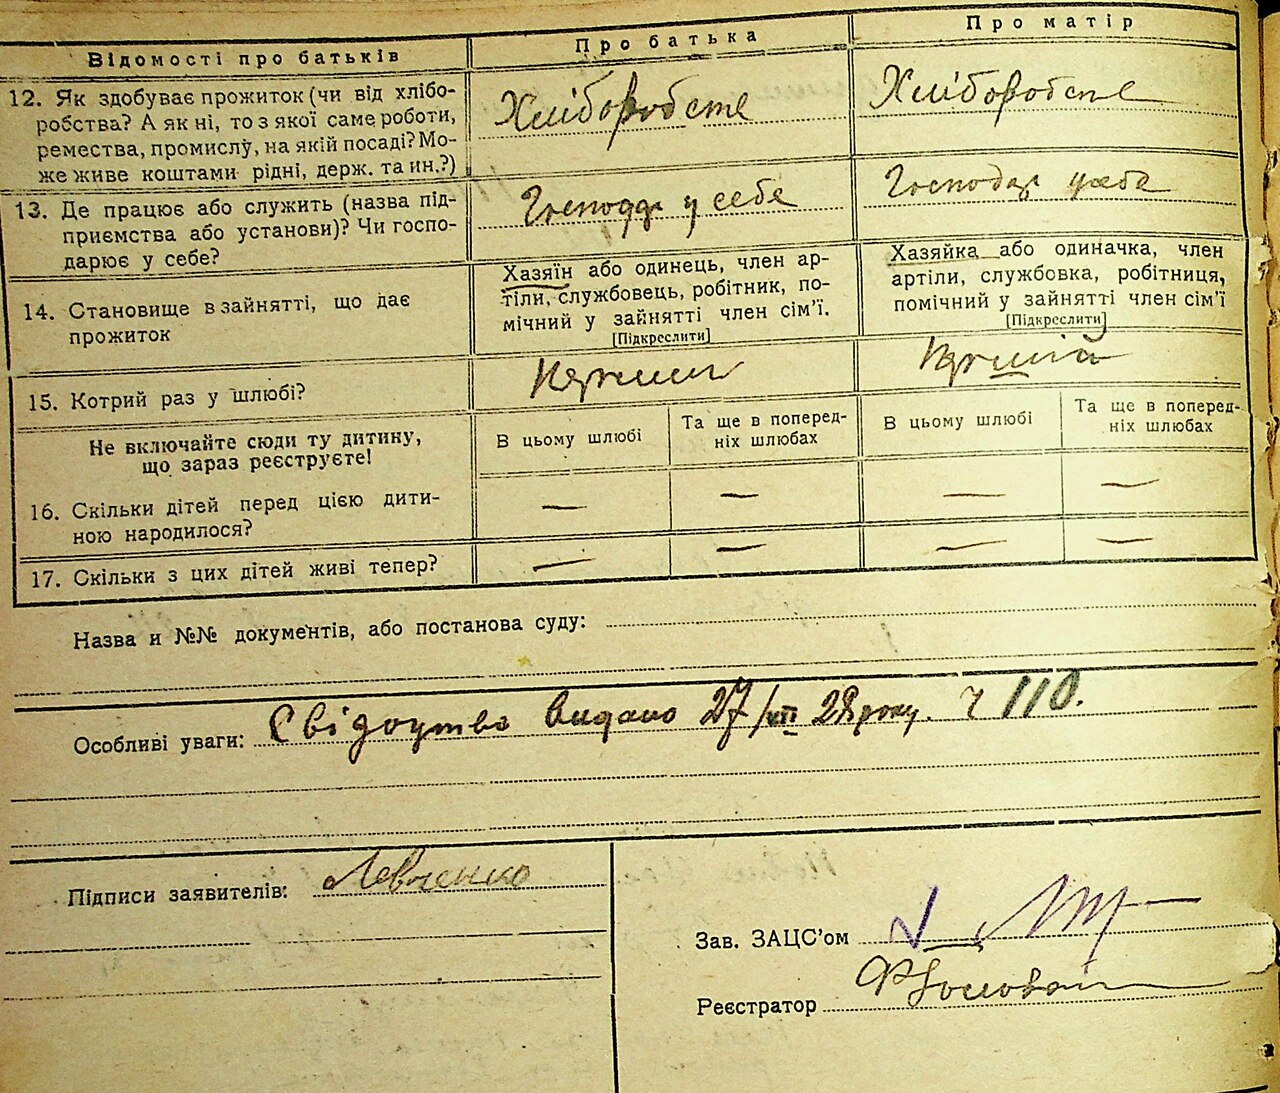 Відомості про батьків
Про батька
Про матір
12. Як здобуває прожиток (чи від хлібо-
робства? А як ні, то з якої саме роботи,
ремества, промислу, на якій посаді? Мо-
же живе коштами рідні, держ. та ин.?)
Хліборобств
Хліборобств
13. Де працює або служить (назва під-
приємства або установи)? Чи госпо-
дарює у себе?
Господар у себе
Господар у себе
14. Становище в зайнятті, що дає
прожиток
Хазяїн або одинець, член ар-
тіли, службовець, робітник, по-
мічний у зайнятті член сім'ї.
[Підкреслити]
Хазяйка або одиначка, член
артіли, службовка, робітниця,
помічний у зайнятті член сім'ї
[Підкреслити]
15. Котрий раз у шлюбі?
Не включайте сюди ту дитину,
що зараз реєструєте!
В цьому шлюбі
Та ще в поперед-
ніх шлюбах
В цьому шлюбі
Та ще в поперед-
ніх шлюбах
16. Скільки дітей перед цією дити-
ною народилося?
— — — —
17. Скільки з цих дітей живі тепер?
— — — —
Назва и №№ документів, або постанова суду:
Особливі уваги: Свідоцтво видано 27/VII 28 року. Ч 110.
Підписи заявителів: Левченко
Зав. ЗАЦС'ом
Реєстратор